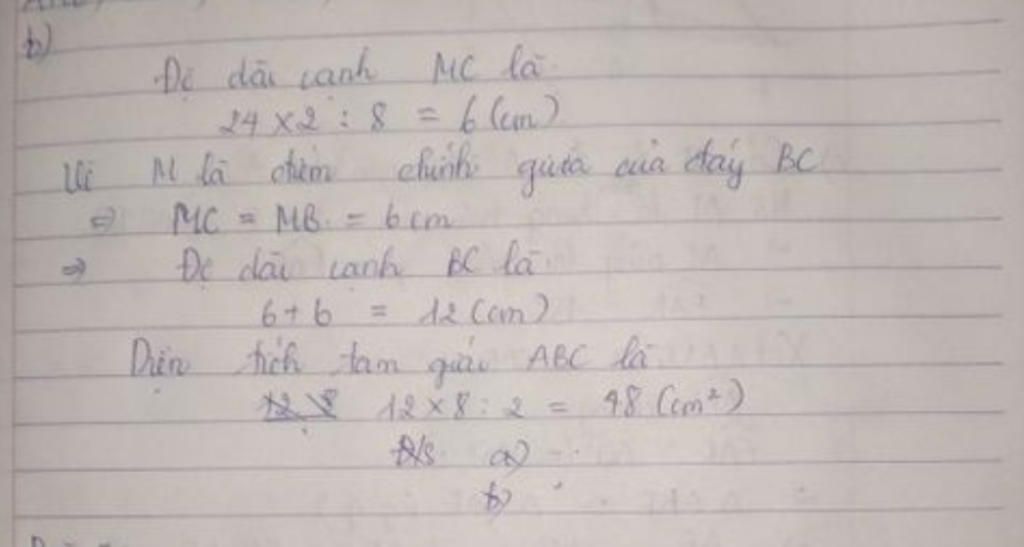 b)
Độ dài cạnh MC là
24 x 2 : 8 = 6 (cm)
Vì M là điểm chính giữa của đáy BC
=> MC = MB = 6 cm
=> Độ dài cạnh BC là
6 + 6 = 12 (cm)
Diện tích tam giác ABC là
12 x 8 : 2 = 48 (cm²)
Đ/s a)
b)